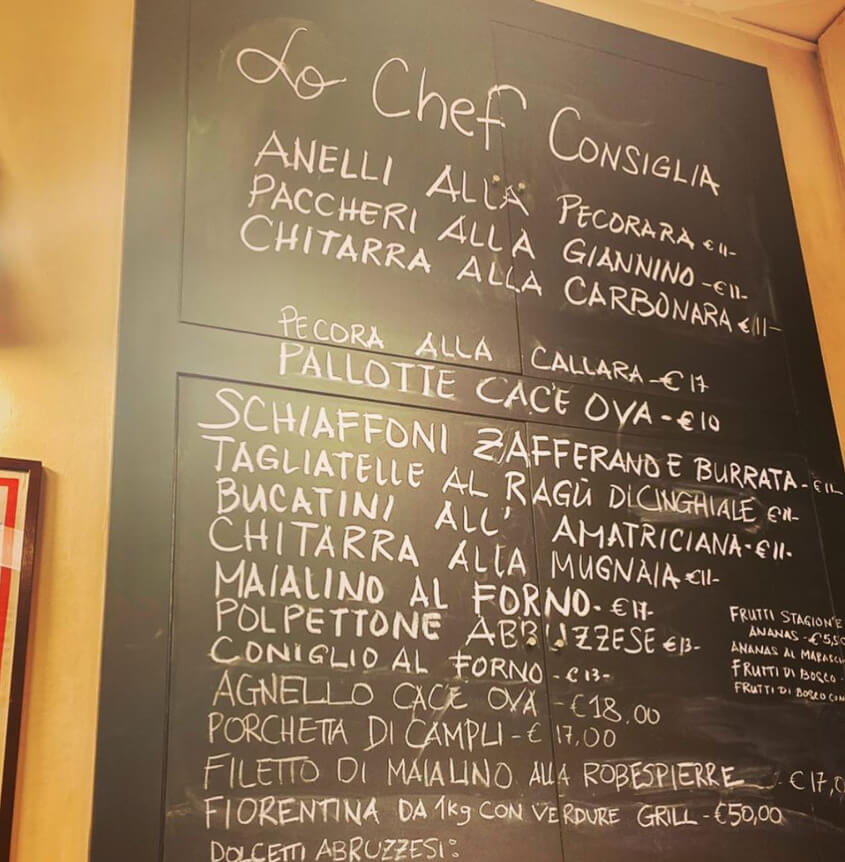 Lo Chef CONSIGLIA
ANELLI ALLA PECORARA €11-
PACCHERI ALLA GIANNINO -€11-
CHITARRA ALLA CARBONARA €11-
PECORA ALLA CALLARA -€17
PALLOTTE CAC'E OVA -€10
SCHIAFFONI ZAFFERANO E BURRATA -
TAGLIATELLE AL RAGÙ DI CINGHIALE €11-
BUCATINI ALL' AMATRICIANA -€11-
CHITARRA ALLA MUGNAIA -€11-
MAIALINO AL FORNO -€17-
POLPETTONE ABBRUZZESE €13-
CONIGLIO AL FORNO -€13-
AGNELLO CAC'E OVA -€18,00
PORCHETTA DI CAMPLI -€ 17,00
FILETTO DI MAIALINO ALLA ROBESPIERRE -€17,0
FIORENTINA DA 1kg CON VERDURE GRILL -€50,00
DOLCETTI ABRUZZESI:
FRUTTI STAGION'E
ANANAS -€5,50
ANANAS AL MARASC
FRUTTI DI BOSCO -
FRUTTI DI BOSCO CON